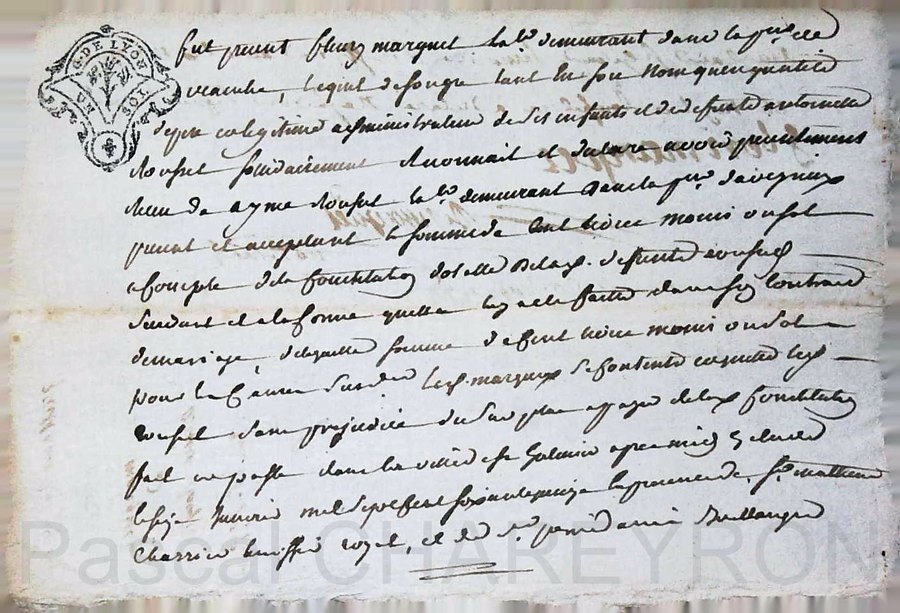 G. DE LYON
UN SOL
fut present fleury marquet lab.r demeurant dans la p.sse de
lequel de son gré tant en son nom qu'en qualité
de pere et legitime administrateur de ses enfants et de defunte antoinette
rousset solidairement reconnait et declare avoir presentement
receu de ayme rousset lab.r demeurant dans la p.sse
present et acceptant la somme de cent trois moins un sol
a compte de la constitution dotalle de lad. defunte rousset
suivant et a la forme quelle luy a ete faitte dans son contrand
de mariage, de laquelle somme de cent trois moins un sol
pour la cause susd. led. marquet se contente et quitte led.
rousset sans prejudice du surplus a payer de lad. constitution
fait et passé dans la ville de st Galmier apres midy
le seize mil sept cent soixante presence de s.r Mathieu
Charrier huissier royal, et de s.r Boullanger
Pascal CHAREYRON